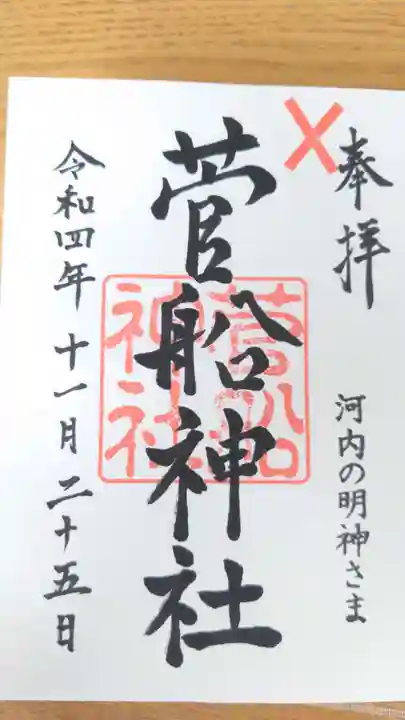 奉拝
河内の明神さま
菅船神社
菅船
神社
令和四年 十一月 二十五日